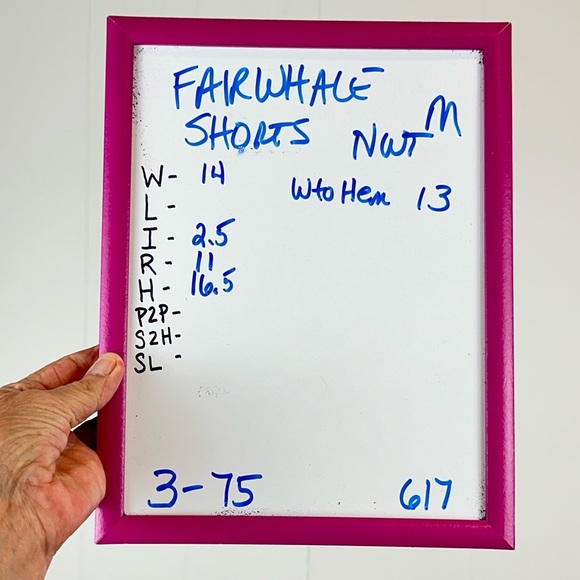 FAIRWHALE
SHORTS NWT M
W- 14 WtoHem 13
L-
I- 2.5
R- 11
H- 16.5
P2P-
S2H-
SL-
3-75 617